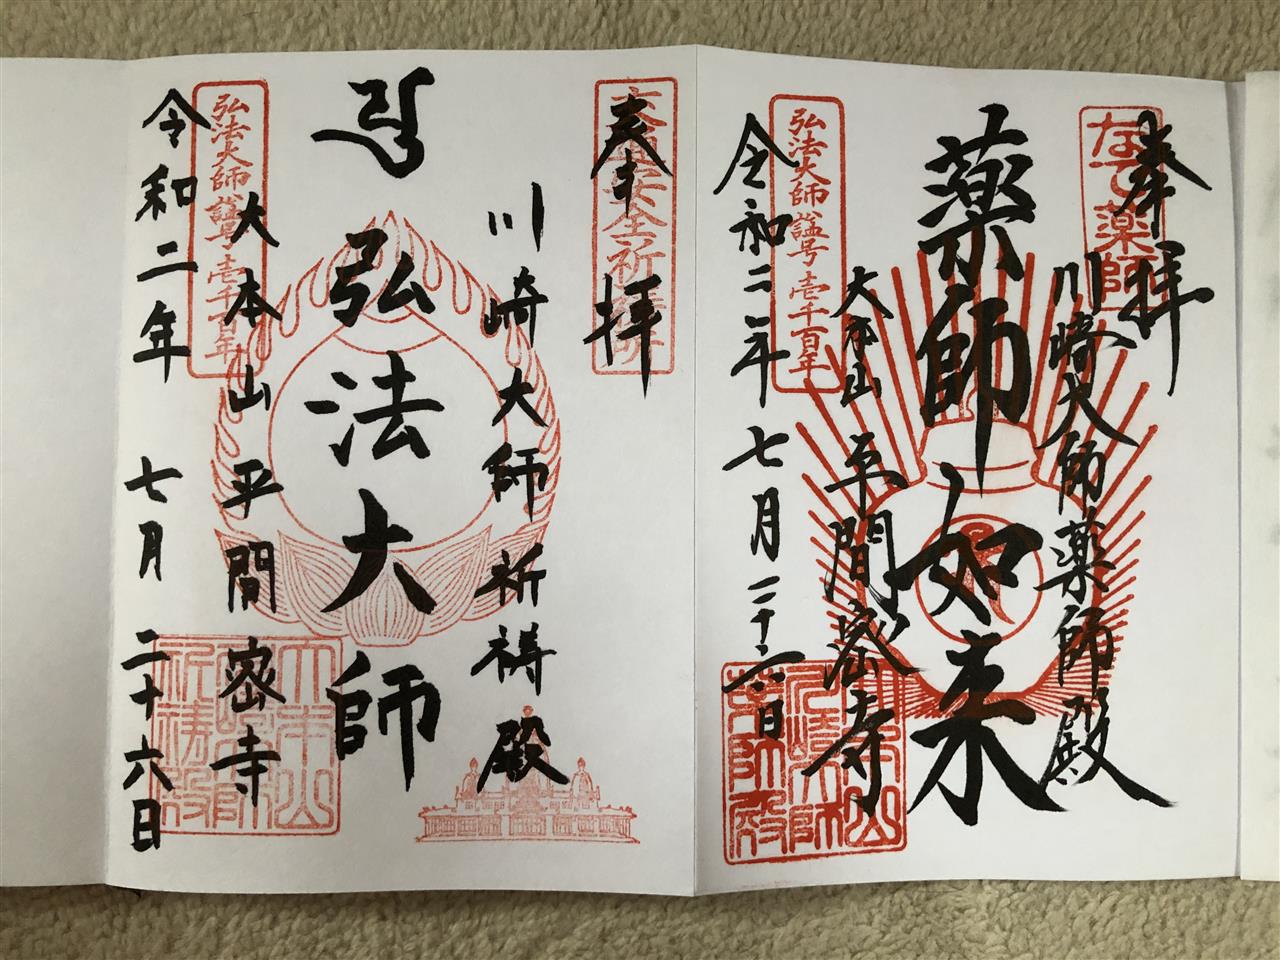 奉拝
なで薬師
川崎大師薬師殿
薬師如来
大本山 平間密寺
弘法大師諡号壱千百年
令和二年 七月二十六日
奉拝
交通安全祈祷所
川崎大師祈祷殿
弘法大師
大本山 平間密寺
弘法大師諡号壱千百年
令和二年 七月 二十六日
大本山
川崎大師
祈祷殿